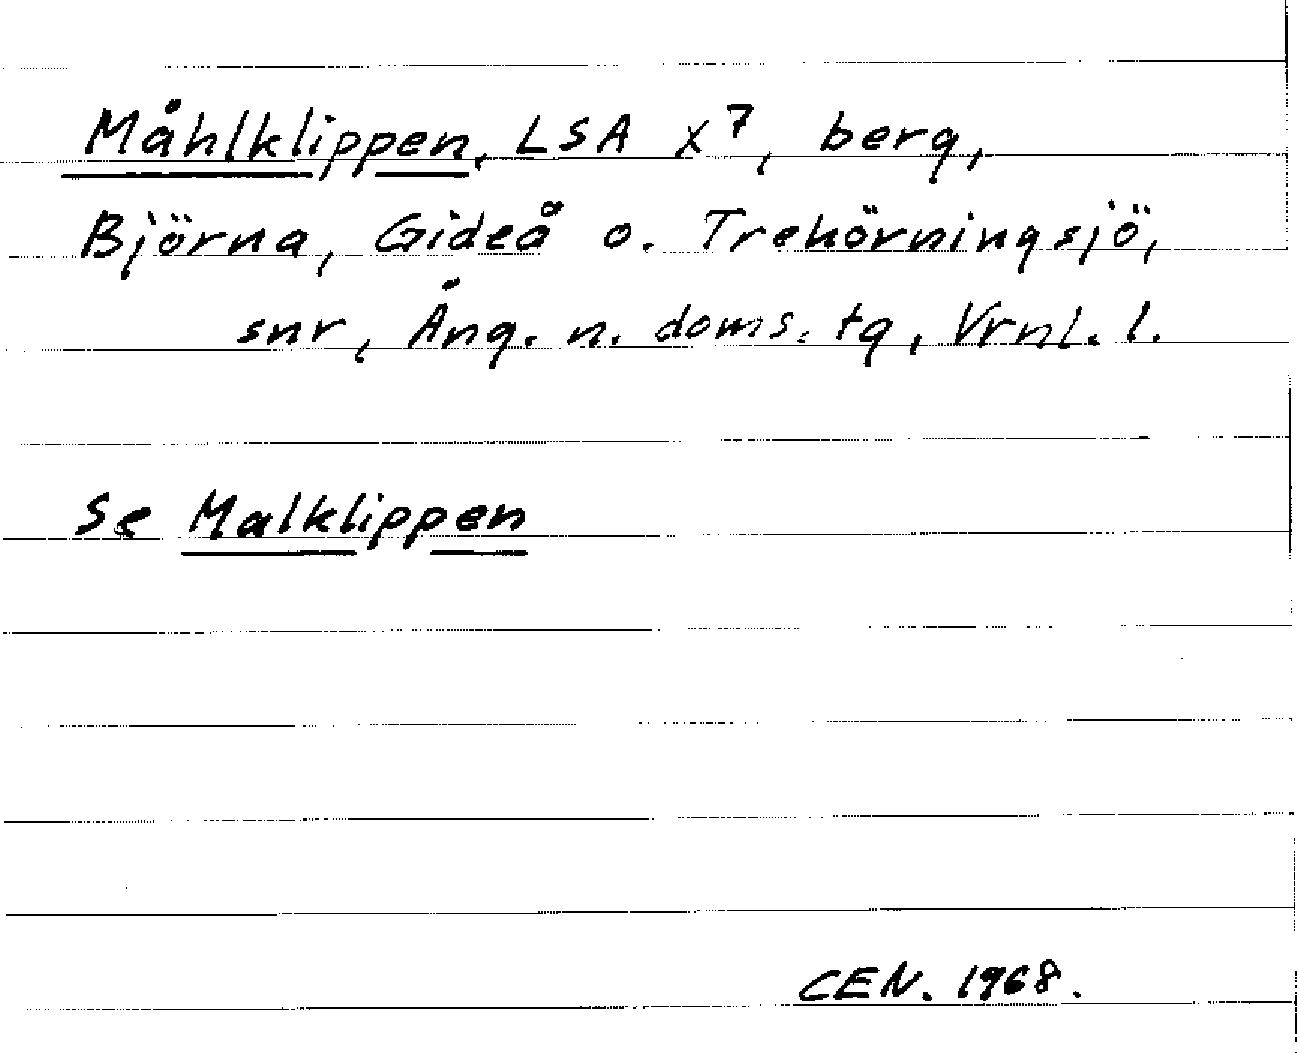 Måhlklippen, LSA X⁷, berg,
Björna, Gideå o. Trehörningsjö,
snr, Ång. n. doms. tg, Vrnl. l.
Se Malklippen
CEN. 1968.